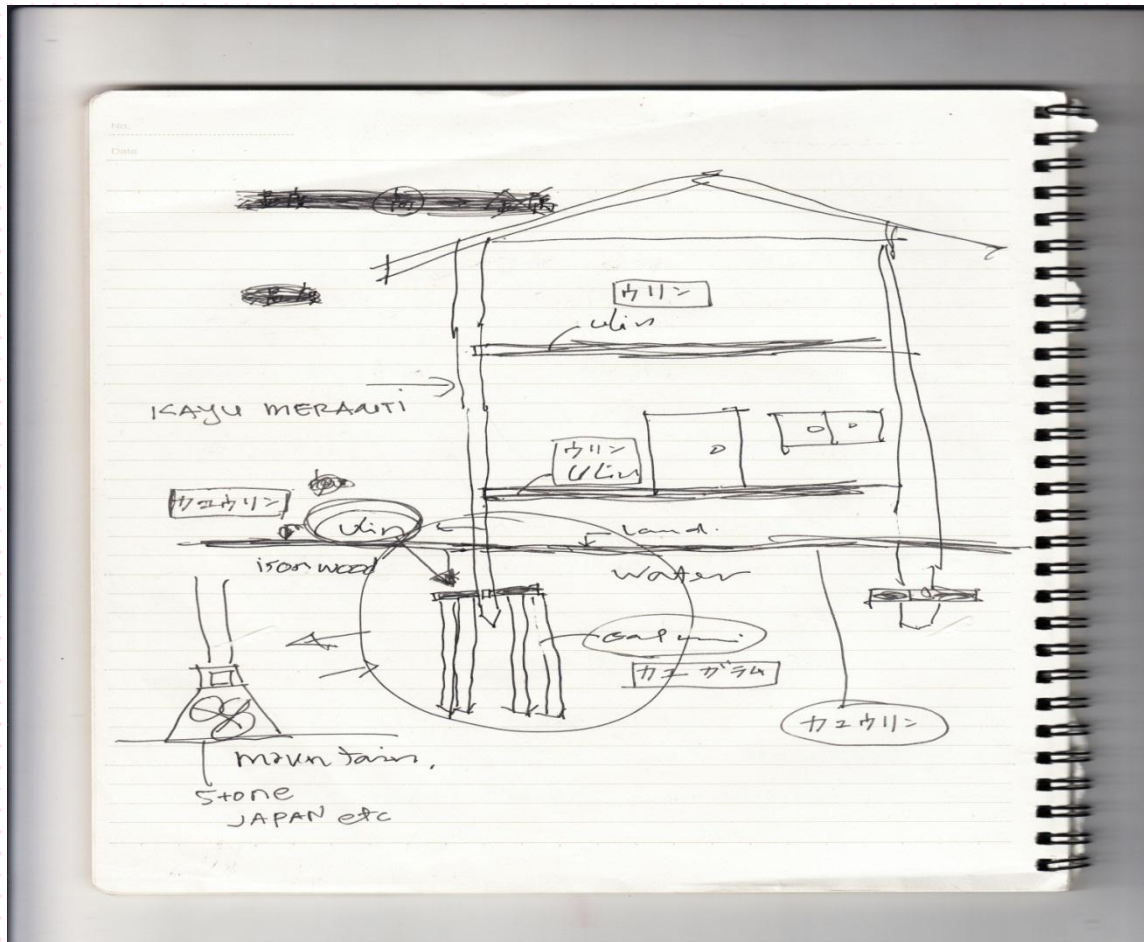 No.
Date
ウリン
ulin
KAYU MERANTI
ウリン
Ulin
カユウリン
Ulin
Land.
iron wood
Water
カユ ガラム
カユウリン
mountain.
Stone
JAPAN etc